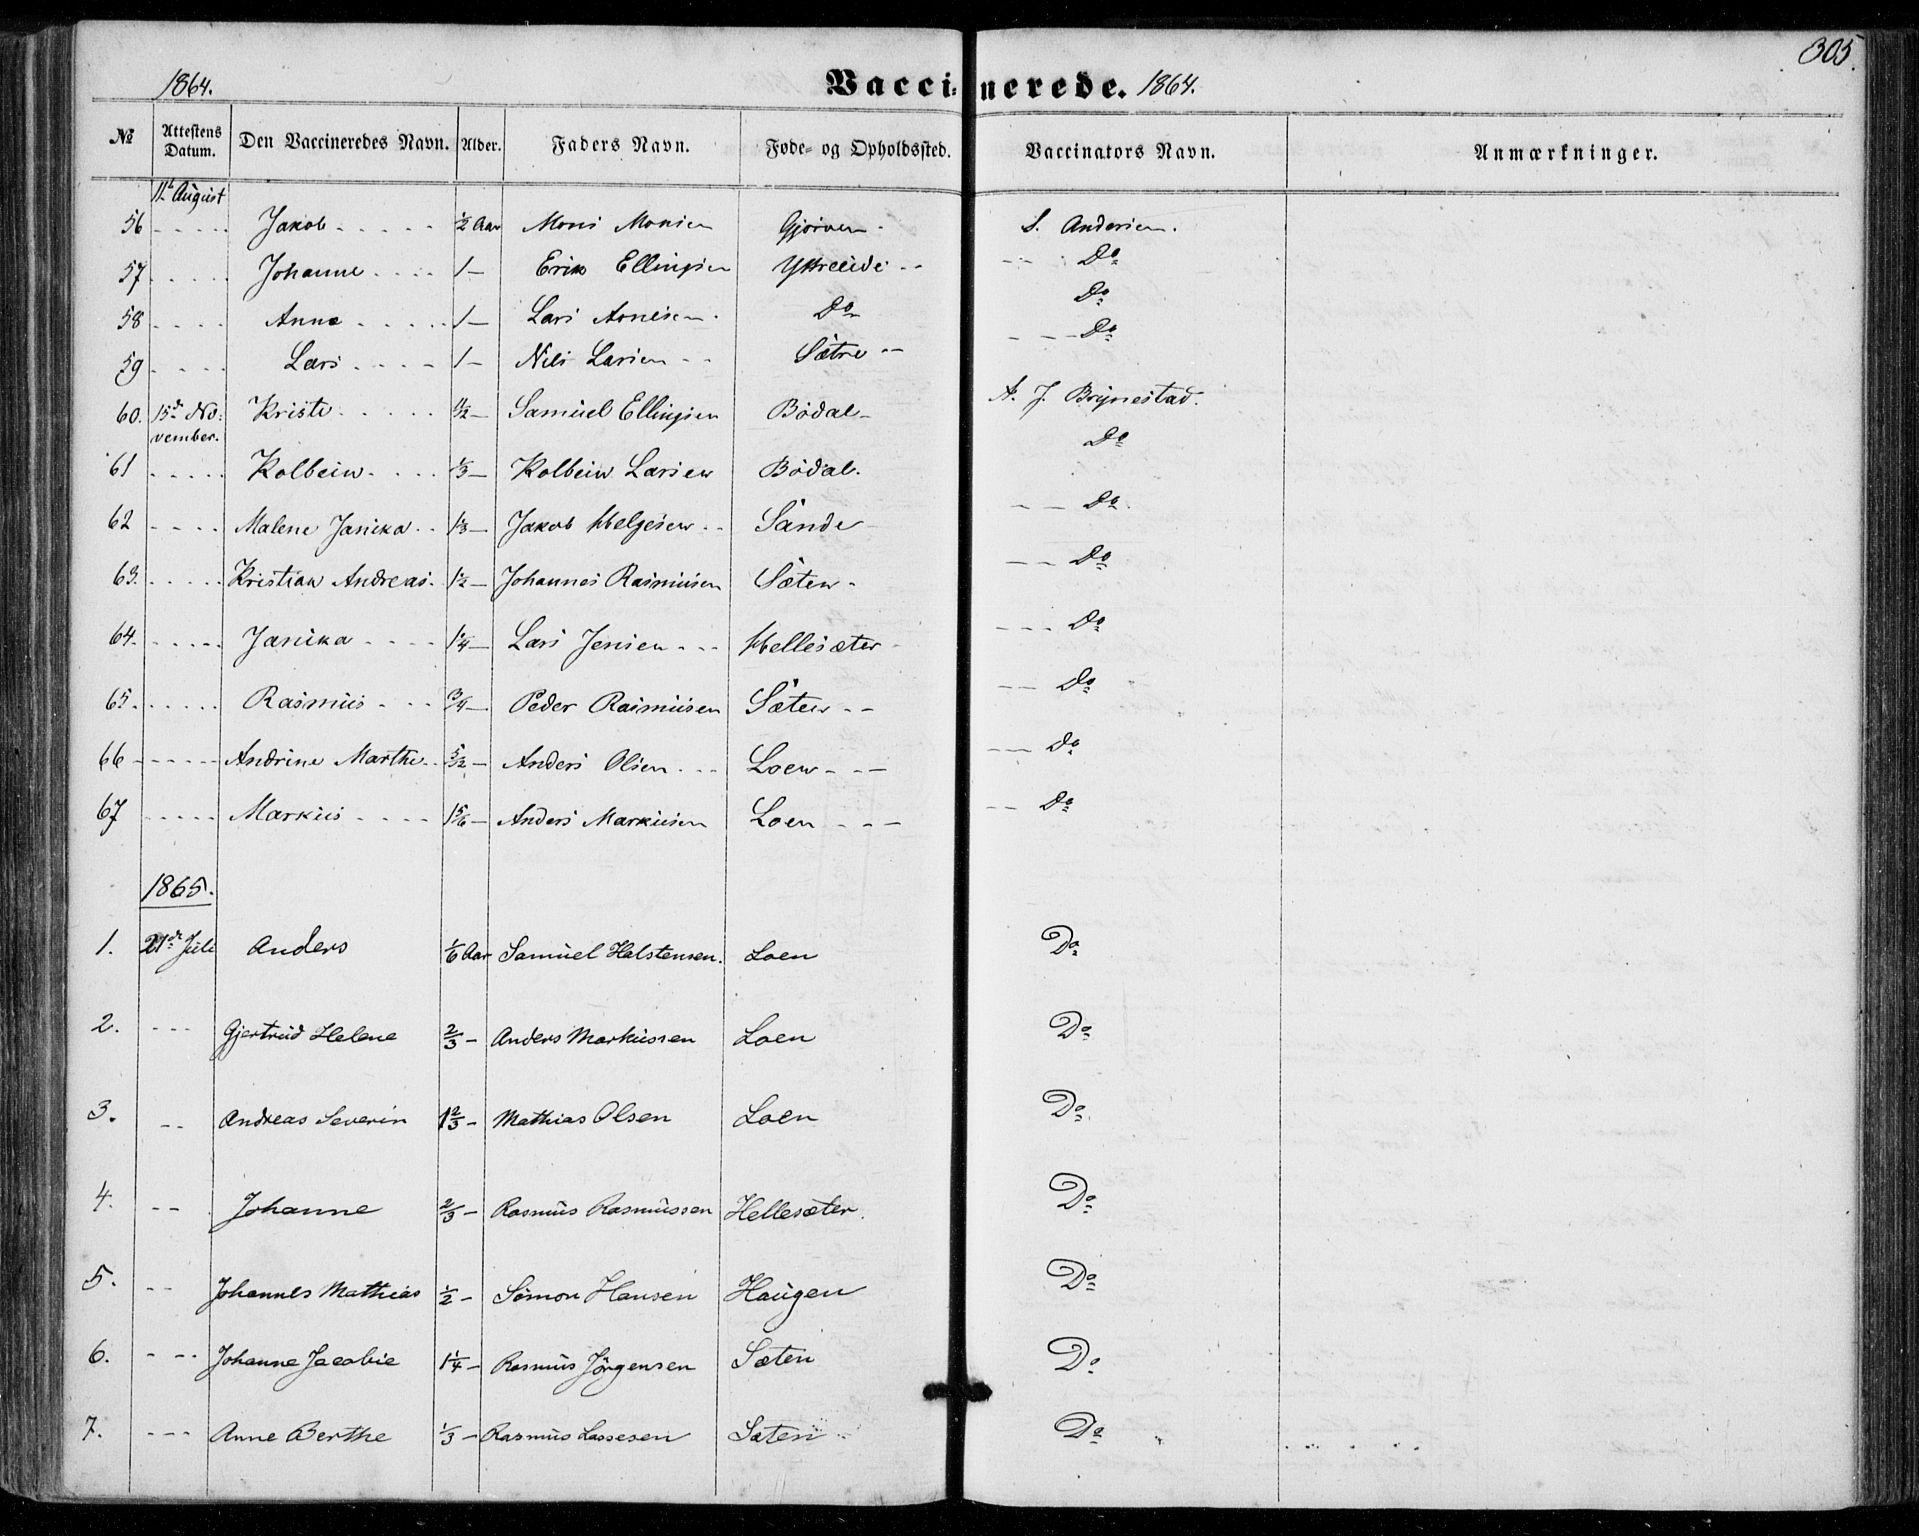 305.
1864. Vaccinerede. 1864.
№ Attestens Datum. Den Vaccineredes Navn. Alder. Faders Navn. Føde- og Opholdssted. Vaccinators Navn. Anmærkninger.
11te August
56 Jakob 1/2 Aar Mons Monsen Gjørven S. Andersen.
57 Johanne 1 Erik Ellingsen Yttreeide Do
58 Anne 1 Lars Do Do
59 Lars 1 Nils Larsen Sætre Do
60. 15de No- Kristi Samuel Ellingsen Bødal A. J. Brynestad.
vember.
61 Kolbein 1/3 Kolbein Larsen Bødal. Do
62 Malene Janika 1 1/3 Jakob Helgesen Sande Do
63. Kristian Andreas 1 1/2 Johannes Rasmusen Sæten Do
64. Janika 1 1/4 Lars Jensen Hellesæter Do
65. Rasmus 3/4 Peder Rasmusen Sæten Do
66 Andrine Marthe Anders Olsen Loen Do
67 Markus 1 5/6 Anders Markusen Loen Do
1865.
1. 21de Juli Anders 1/6 Aar Samuel Halstensen. Loen Do
2. Gjertrud Helene 2/3 Anders Markussen Loen Do
3. Andreas Severin 1 2/3 Mathias Olsen Loen Do
4. Johanne 2/3 Rasmus Rasmussen Hellesæter. Do
5. Johannes Mathias 1/2 Simon Hansen Haugen Do
6. Johanne Jacobie 1 1/4 Rasmus Jörgensen Sæten Do
7. Anne Berthe 1/3 Rasmus Lassesen Sæten Do